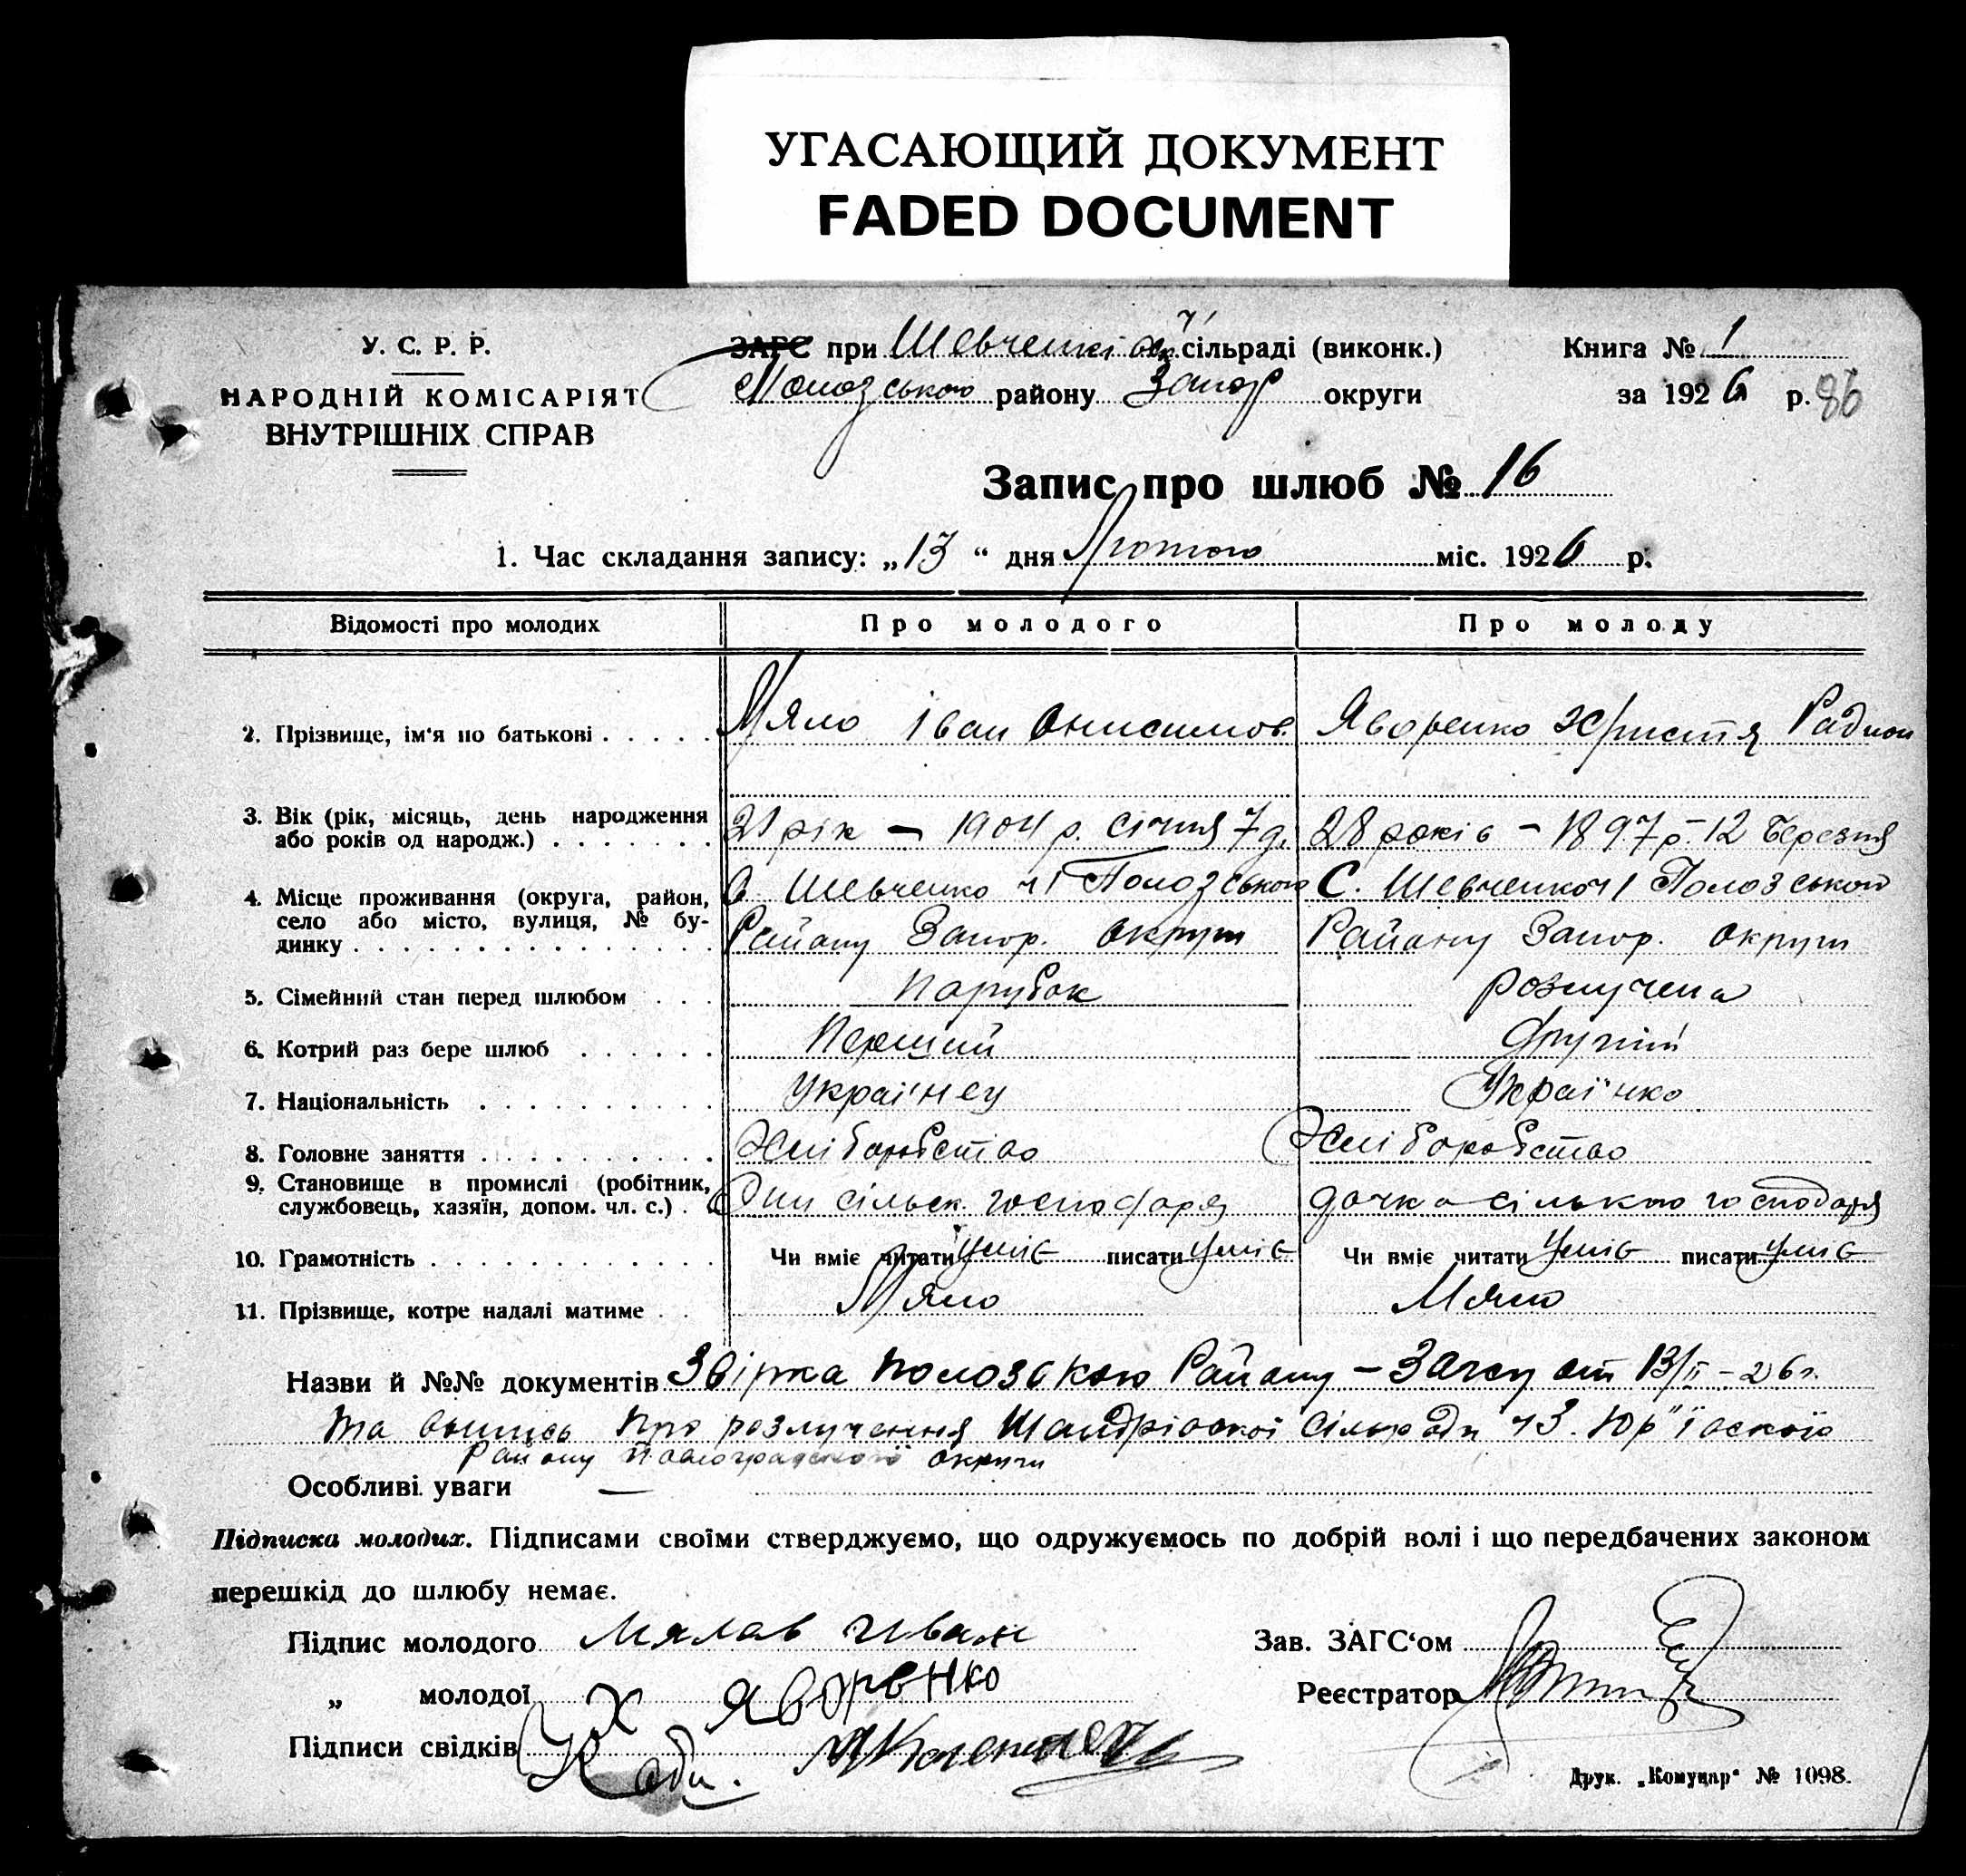 УГАСАЮЩИЙ ДОКУМЕНТ
FADED DOCUMENT
У. С. Р. Р.
НАРОДНІЙ КОМІСАРІЯТ
ВНУТРІШНІХ СПРАВ
ЗАГС при Шевченківськ. ч1 сільраді (виконк.)
Полозського району Запор округи
Книга № 1
за 1926 р. 86
Запис про шлюб № 16
1. Час складання запису: „13“ дня Лютого міс. 1926 р.
Відомості про молодих Про молодого Про молоду
2. Прізвище, ім'я по батькові Мяло Іван Онисимов. Яворенко Христя Радион
3. Вік (рік, місяць, день народження
або років од народж.) 21 рік – 1904 р. січня 7 д. 28 років – 1897 р. 12 Березня
4. Місце проживання (округа, район, С. Шевченко ч1 Полозського С. Шевченко ч1 Полозського
село або місто, вулиця, № бу-
динку Району Запор. округи Району Запор. округи
5. Сімейний стан перед шлюбом парубок розлучена
6. Котрий раз бере шлюб Перший Другий
7. Національність Україънец Україънко
8. Головне заняття Хліборобство Хліборобство
9. Становище в промислі (робітник,
службовець, хазяїн, допом. чл. с.) Син сільск. господаря дочка сілького господаря
10. Грамотність Чи вміє читати Уміє писати Уміє Чи вміє читати Уміє писати Уміє
11. Прізвище, котре надалі матиме Мяло Мяло
Назви й №№ документів Звірка Полозского Району – Загсу от 13/II – 26 г.
та про розлучення сільради ч3. Юр"ївскоїо
Району Павлоградської округи
Особливі уваги —
Підписка молодих. Підписами своїми стверджуємо, що одружуємось по добрій волі і що передбачених законом
перешкід до шлюбу немає.
Підпис молодого Мялов Иван
Зав. ЗАГС'ом
„ молодої Х Яворенко
Реєстратор
Підписи свідків
Друк. „Комунар“ № 1098.